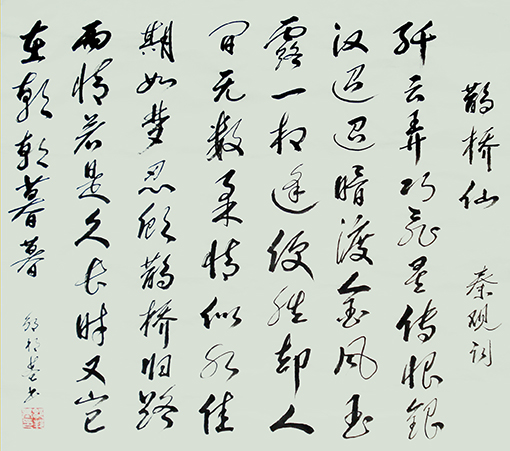 鹊桥仙 秦观词
纤云弄巧飞星传恨银
汉迢迢暗渡金风玉
露一相逢便胜却人
间无数柔情似水佳
期如梦忍顾鹊桥归路
两情若是久长时又岂
在朝朝暮暮